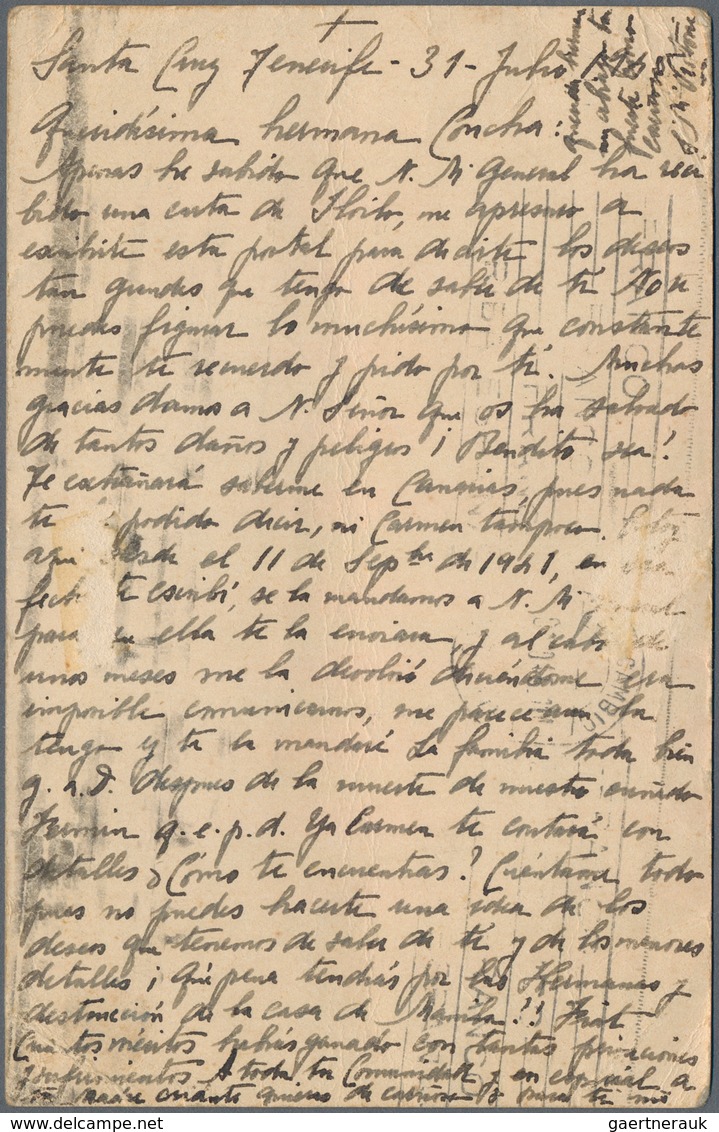 Santa Cruz Tenerife - 31 - Julio
Queridísima hermana Concha:
Apenas he sabido que N. M. General ha reci
bido una carta de Iloilo, me apresuro a
escribirte esta postal para decirte los deseos
tan grandes que tengo de saber de tí No te
puedes figurar lo muchísimo que constante
mente te recuerdo y pido por tí. Muchas
gracias damos a N. Señor que os ha salvado
de tantos daños y peligros ¡Bendito sea!
Te extrañará saberme en Canarias, pues nada
te podido decir, ni Carmen tampoco. Estoy
aquí desde el 11 de Sepbre de 1941, en esa
fecha te escribí, se la mandamos a N. M. General
para que ella te la enviara, y al cabo de
unos meses me la devolvió diciéndome era
imposible comunicarnos, me parece aun la
tengo y te la mandaré La familia toda bien
g. a. D. despues de la muerte de nuestro cuñado
Fermin q. e. p. d. Ya Carmen te contará con
detalles ¿Cómo te encuentras? Cuéntame todo
pues no puedes hacerte una idea de los
deseos que tenemos de saber de tí y de los menores
detalles ¡qué pena tendrás por las Hermanas y
destrucción de la casa de Manila!! Fiat
Cuantos méritos habrás ganado con tantas privaciones
y sufrimientos A toda tu Comunidad y en especial a
tu Madre cuanto quieras de cariñoso y para ti mi
querida herma
na
fuerte
cariñoso
gaertnerauk